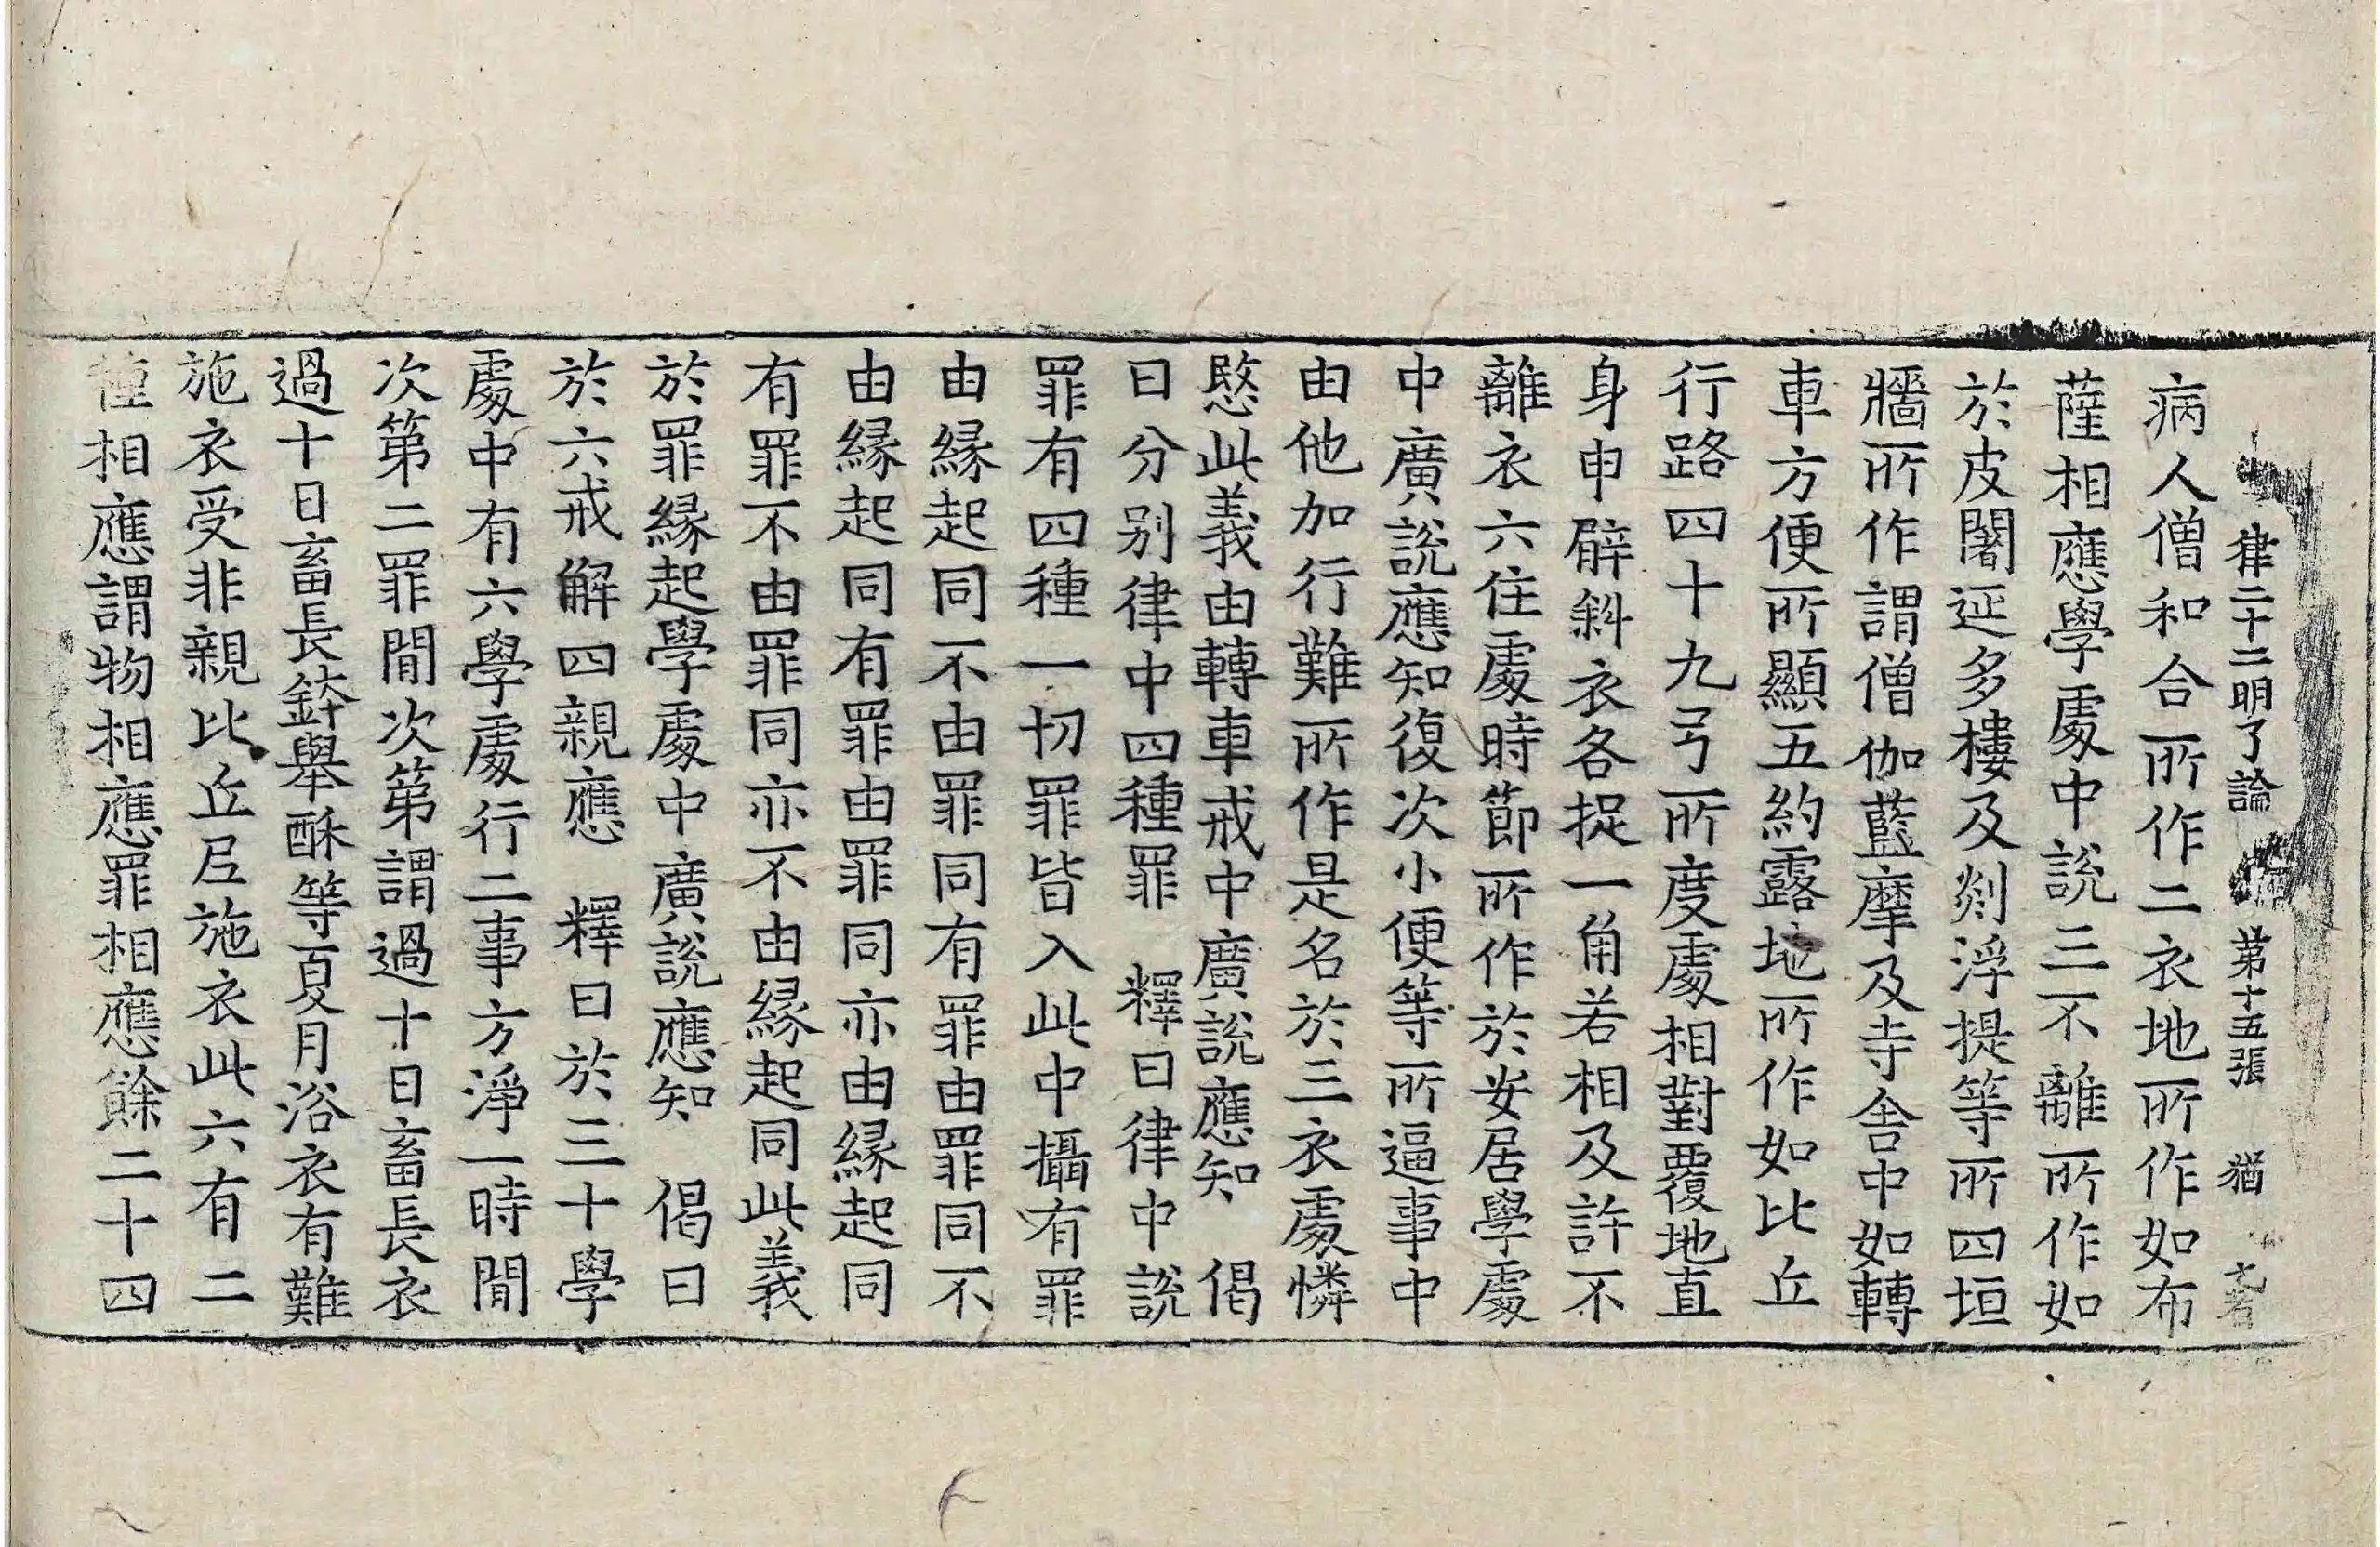 律二十二明了論 第十五張 猶
病人僧和合所作二衣地所作如布
薩相應學處中說三不離所作如
於皮闍延多樓及剡浮提等所四垣
牆所作謂僧伽藍摩及寺舍中如轉
車方便所顯五約露地所作如比丘
行路四十九弓所度處相對覆地直
身申臂斜衣各捉一角若相及許不
離衣六住處時節所作於安居學處
中廣說應知復次小便等所逼事中
由他加行難所作是名於三衣處憐
愍此義由轉車戒中廣說應知 偈
曰分別律中四種罪 釋曰律中說
罪有四種一切罪皆入此中攝有罪
由緣起同不由罪同有罪由罪同不
由緣起同有罪由罪同亦由緣起同
有罪不由罪同亦不由緣起同此義
於罪緣起學處中廣說應知 偈曰
於六戒解四親應 釋曰於三十學
處中有六學處行二事方淨一時間
次第二罪間次第謂過十日畜長衣
過十日畜長鉢舉酥等夏月浴衣有難
施衣受非親比丘尼施衣此六有二
種相應謂物相應罪相應餘二十四